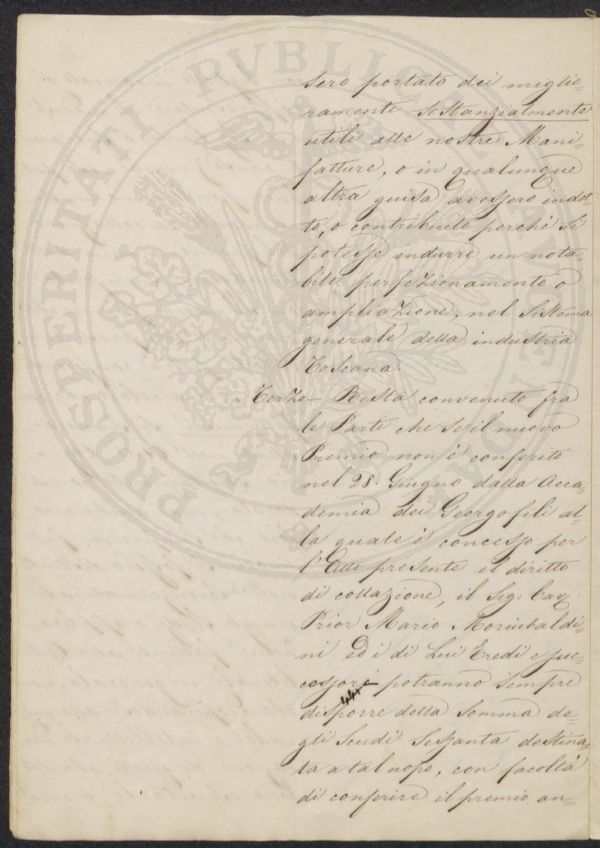 PROSPERITATI PVBLICAE
sero portato dei miglio=
ramente sostanzialmente
utili alle nostre Mani=
fatture, o in qualunque
altra guisa avessero indot=
to, o contribuito perchè si
potesse indurre un nota=
bile perfezionamento o
ampliazione, nel sistema
generale della industria
Toscana.
Terzo – Resta convenuto fra
le Parti che se il nuovo
Premio non è conferito
nel 28. Giugno dalla Acca=
demia dei Georgofili al=
la quale è concesso per
l'Atto presente il diritto
di collazione, il Sig: Cav:
Prior Mario Moriubaldi=
ni ed i di Lui Eredi e suc=
cessori potranno sempre
disporre della somma de=
gli Scudi Sessanta destina=
ta a tal uopo, con facoltà
di conferire il premio an=